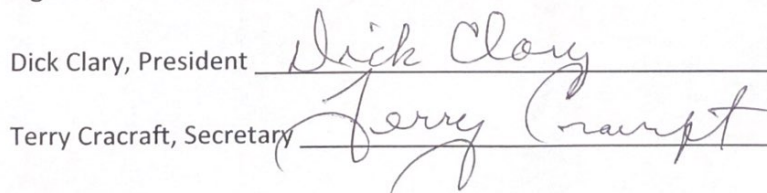 Dick Clary, President Dick Clary
Terry Cracraft, Secretary Terry Cracraft